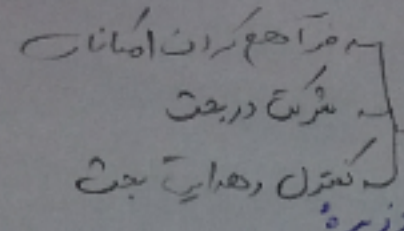 فراهم کردن امکانات
شرکت در بحث
کنترل و هدایت بحث